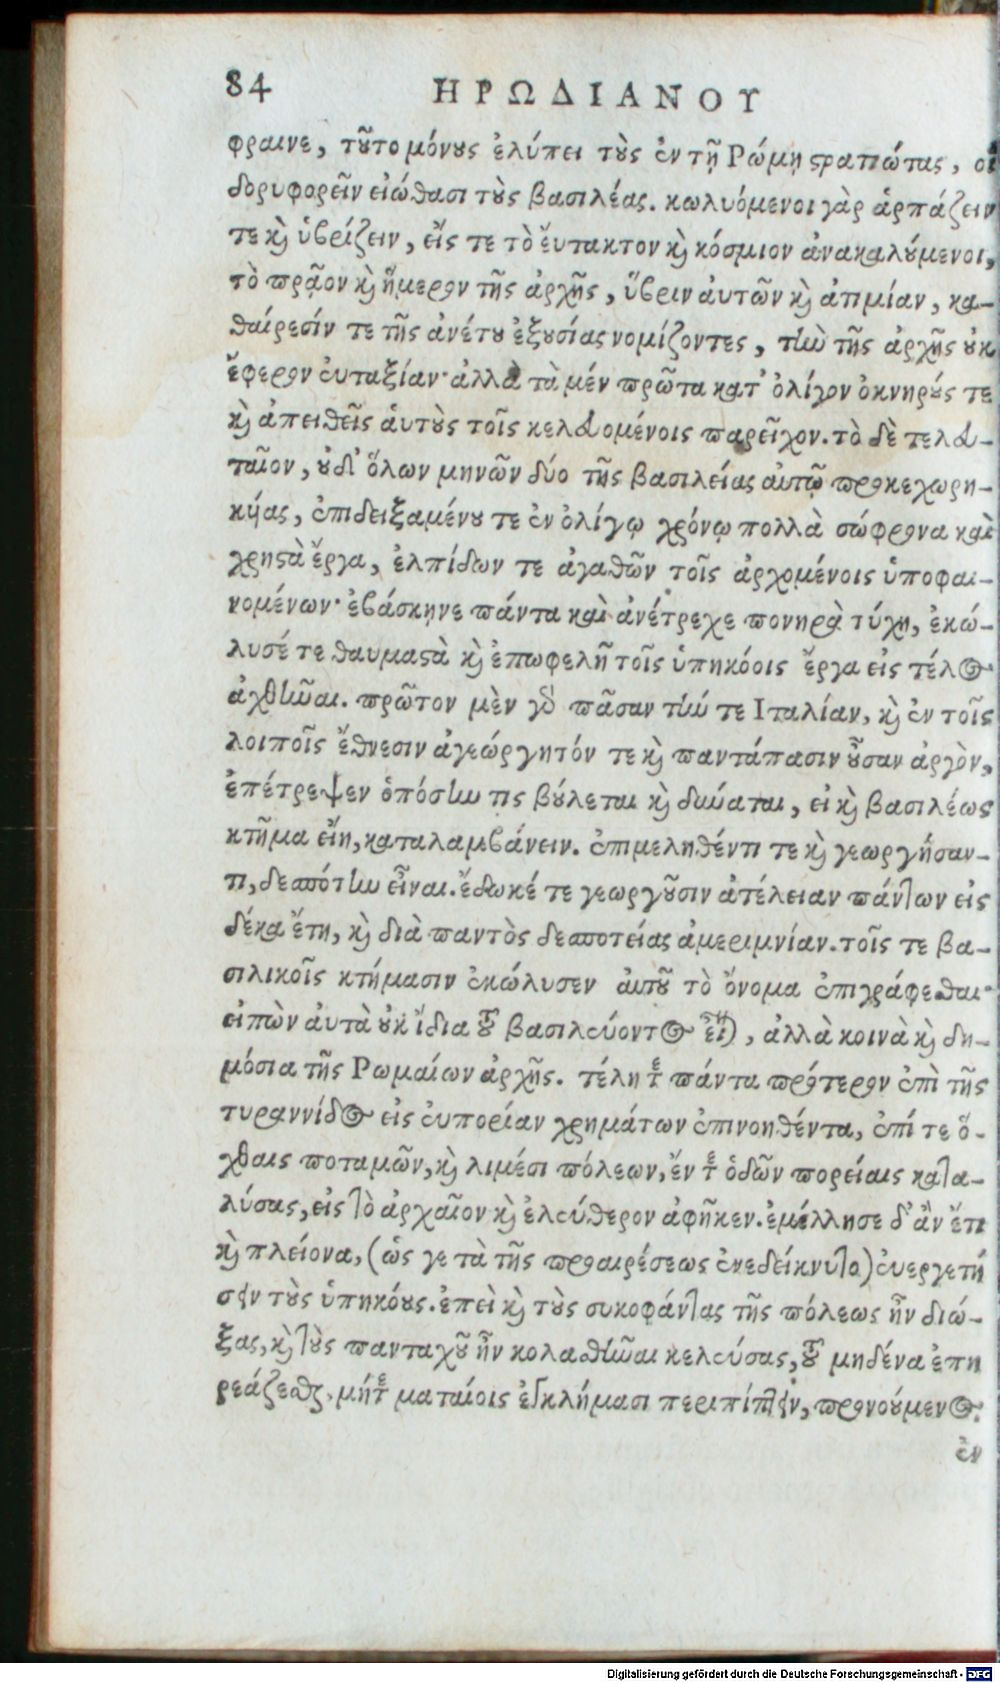 84 ΗΡΩΔΙΑΝΟΥ
φραινε, τοῦτο μόνους ἐλύπει τοὺς ἐν τῇ Ρώμῃ στρατιώτας, οἳ
δορυφορεῖν εἰώθασι τοὺς βασιλέας. κωλυόμενοι γὰρ ἁρπάζειν
τε καὶ ὑβρίζειν, εἴς τε τὸ ἔυτακτον καὶ κόσμιον ἀνακαλούμενοι,
τὸ πρᾷον καὶ ἥμερον τῆς ἀρχῆς, ὕβριν ἀυτῶν καὶ ἀτιμίαν, κα-
θαίρεσίν τε τῆς ἀνέτου ἐξουσίας νομίζοντες, τὴν τῆς ἀρχῆς οὐκ
ἔφερον ἐυταξίαν· ἀλλὰ τὰ μέν πρῶτα κατ' ὀλίγον ὀκνηρούς τε
καὶ ἀπειθεῖς ἁυτοὺς τοῖς κελευομένοις παρεῖχον. τὸ δὲ τελευ-
ταῖον, οὐδ' ὅλων μηνῶν δύο τῆς βασιλείας αὐτῷ προκεχωρη-
κυίας, ἐπιδειξαμένου τε ἐν ὀλίγῳ χρόνῳ πολλὰ σώφρονα καὶ
χρηστὰ ἔργα, ἐλπίδων τε ἀγαθῶν τοῖς ἀρχομένοις ὑποφαι-
νομένων· ἐβάσκηνε πάντα καὶ ἀνέτρεχε πονηρὰ τύχη, ἐκώ-
λυσέ τε θαυμαστὰ καὶ ἐπωφελῆ τοῖς ὑπηκόοις ἔργα εἰς τέλος
ἀχθῆναι. πρῶτον μὲν γὰρ πᾶσαν τήν τε Ιταλίαν, καὶ ἐν τοῖς
λοιποῖς ἔθνεσιν ἀγεώργητόν τε καὶ παντάπασιν οὖσαν ἀργὸν,
ἐπέτρεψεν ὁπόσην τις βούλεται καὶ δύναται, εἰ καὶ βασιλέως
κτῆμα εἴη, καταλαμβάνειν. ἐπιμεληθέντι τε καὶ γεωργήσαν-
τι, δεσπότην εἶναι. ἔδωκέ τε γεωργοῦσιν ἀτέλειαν πάντων εἰς
δέκα ἔτη, καὶ διὰ παντὸς δεσποτείας ἀμεριμνίαν. τοῖς τε βα-
σιλικοῖς κτήμασιν ἐκώλυσεν αὐτοῦ τὸ ὄνομα ἐπιγράφεσθαι·
εἰπὼν ἀυτὰ οὐκ ἴδια τοῦ βασιλεύοντος εἶναι, ἀλλὰ κοινὰ καὶ δη-
μόσια τῆς Ρωμαίων ἀρχῆς. τέλη τε πάντα πρότερον ἐπὶ τῆς
τυραννίδος εἰς ἐυπορίαν χρημάτων ἐπινοηθέντα, ἐπί τε ὄ-
χθαις ποταμῶν, καὶ λιμέσι πόλεων, ἔν τε ὁδῶν πορείαις κατα-
λύσας, εἰς τὸ ἀρχαῖον καὶ ἐλεύθερον ἀφῆκεν. ἐμέλλησε δ' ἂν ἔτι
καὶ πλείονα, (ὡς γε τὰ τῆς προαιρέσεως ἐνεδείκνυτο) ἐυεργετή
σειν τοὺς ὑπηκόους. ἐπεὶ καὶ τοὺς συκοφάντας τῆς πόλεως ἦν διώ-
ξας, καὶ τοὺς πανταχοῦ ἦν κολασθῆναι κελεύσας, τοῦ μηδένα ἐπη
ρεάζεσθαι, μήτε ματαίοις ἐγκλήμασι περιπίπτειν, προνούμενος.
ἐν
Digitalisierung gefördert durch die Deutsche Forschungsgemeinschaft - DFG